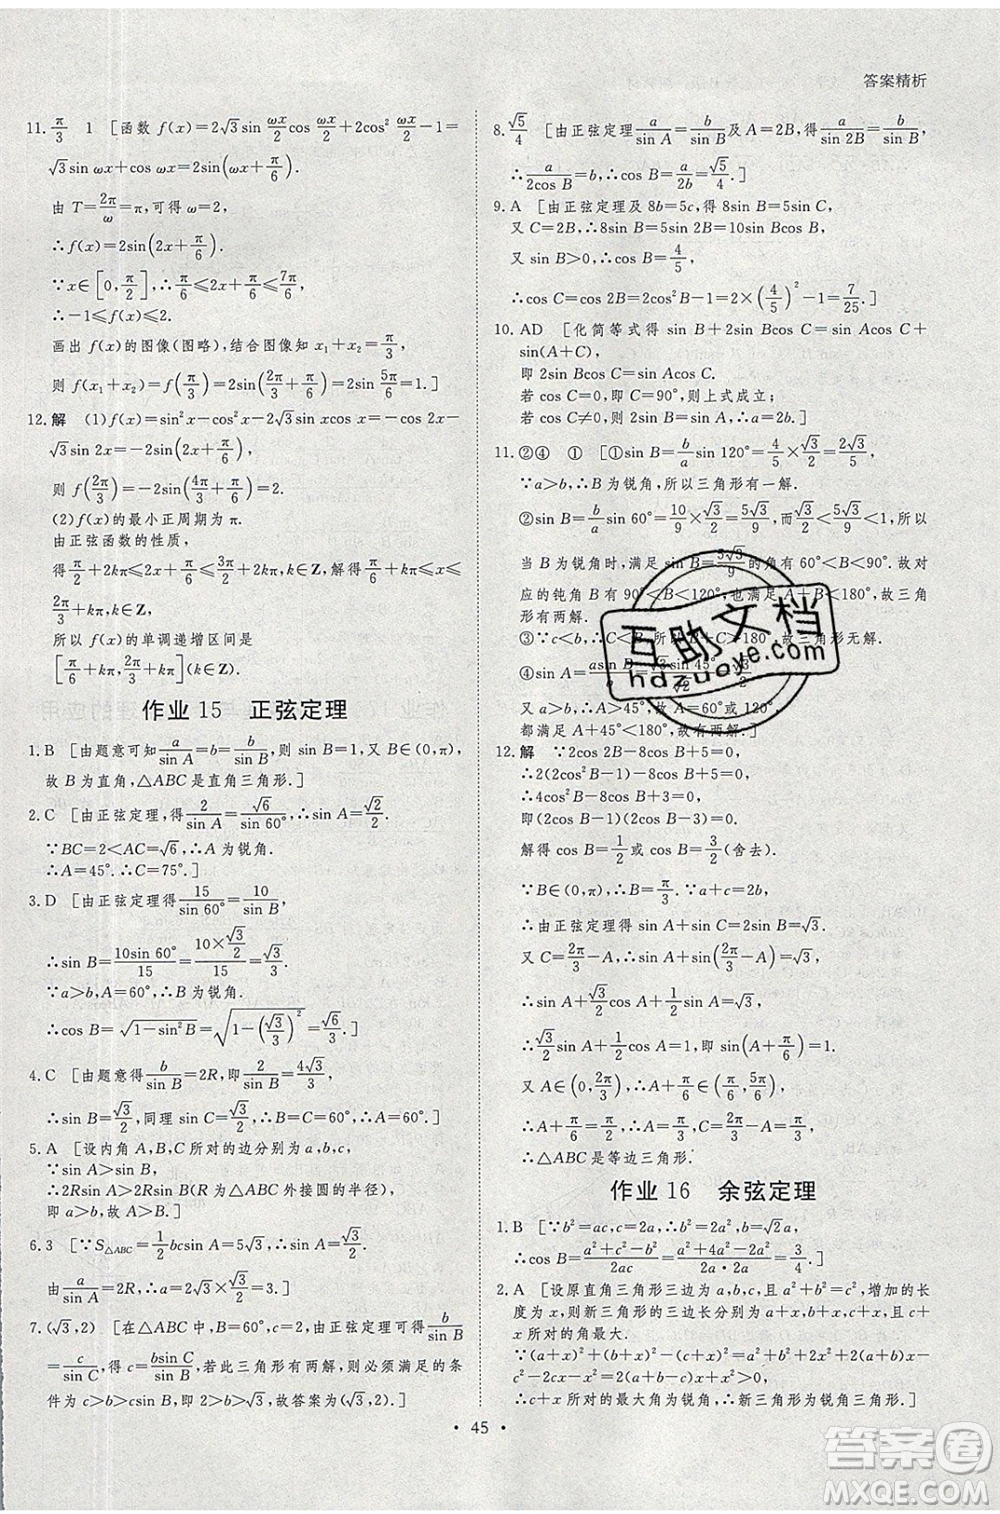 答案精析
11. π/3　1　[函数 f(x)=2√3sin ωx/2 cos ωx/2+2cos² ωx/2-1=
√3sin ωx+cos ωx=2sin(ωx+π/6).
由 T=2π/ω=π,可得 ω=2,
∴f(x)=2sin(2x+π/6).
∵x∈[0,π/2],∴π/6≤2x+π/6≤7π/6,
∴-1≤f(x)≤2.
画出 f(x)的图像(图略),结合图像知 x₁+x₂=π/3,
则 f(x₁+x₂)=f(π/3)=2sin(2π/3+π/6)=2sin 5π/6=1.]
12. 解　(1)f(x)=sin²x-cos²x-2√3sin xcos x=-cos 2x-
√3sin 2x=-2sin(2x+π/6),
则 f(2π/3)=-2sin(4π/3+π/6)=2.
(2)f(x)的最小正周期为 π.
由正弦函数的性质,
得π/2+2kπ≤2x+π/6≤3π/2+2kπ,k∈Z,解得π/6+kπ≤x≤
2π/3+kπ,k∈Z.
所以 f(x)的单调递增区间是
[π/6+kπ,2π/3+kπ],k∈Z.
作业 15　正弦定理
1. B　[由题意可知a/sin A=b=b/sin B,则 sin B=1,又 B∈(0,π),
故 B 为直角,△ABC 是直角三角形.]
2. C　[由正弦定理,得2/sin A=√6/sin 60°,∴sin A=√2/2.
∵BC=2<AC=√6,∴A为锐角.
∴A=45°,∴C=75°.]
3. D　[由正弦定理得15/sin 60°=10/sin B,
∴sin B=10sin 60°/15=10×√3/2/15=√3/3.
∵a>b,A=60°,∴B 为锐角.
∴cos B=√1-sin²B=√1-(√3/3)²=√6/3.]
4. C　[由题意得b/sin B=2R,即2/sin B=4√3/3,
∴sin B=√3/2,同理 sin C=√3/2,∴B=C=60°,∴A=60°.]
5. A　[设内角 A,B,C 所对的边分别为 a,b,c,
∵sin A>sin B,
∴2Rsin A>2Rsin B(R 为△ABC 外接圆的半径),
即 a>b,故 A>B.]
6. 3　[∵S△ABC=1/2bcsin A=5√3,∴sin A=√3/2.
由a/sin A=2R,∴a=√3/2×2√3=3.]
7. (√3,2)　[在△ABC 中,B=60°,c=2,由正弦定理可得b/sin B
=c/sin C,得 c=bsin C/sin B,若此三角形有两解,则必须满足的条
件为 c>b>csin B,即2>b>√3,故答案为(√3,2).]
8. √5/4　[由正弦定理a/sin A=b/sin B及 A=2B,得a/sin 2B=b/sin B,
∴a/2cos B=b,∴cos B=a/2b=√5/4.]
9. A　[由正弦定理及 8b=5c,得 8sin B=5sin C,
又 C=2B,∴8sin B=5sin 2B=10sin Bcos B,
又 sin B>0,∴cos B=4/5,
∴cos C=cos 2B=2cos²B-1=2×(4/5)²-1=7/25.]
10. AD　[化简等式得 sin B+2sin Bcos C=sin Acos C+
sin(A+C).
即 2sin Bcos C=sin Acos C.
若 cos C=0,C=90°,则上式成立;
若 cos C≠0,2sin B=sin A,∴a=2b.]
11. ②④　①　[①sin B=b/a sin 120°=4/6×√3/2=2√3/6,
∵a>b,∴B 为锐角,所以三角形有一解.
②sin B=b/a sin 60°=10/9×√3/2=5√3/9,∵√3/2<5√3/9<1,所以
当 B 为锐角时,满足 sin B=5√3/9的角有 60°<B<90°,故对
应的钝角 B 有 90°<B<120°,也满足 A+B<180°,故三角
形有两解.
③∵c<b,∴C<B,∴B+C>180°,故三角形无解.
④sin A=asin B/b=√3sin 45°/√2=√3/2,
∵a>b,∴A>45°,∴A=60°或120°,
都满足条件,故有两解.]
12. 解　∵2cos 2B-8cos B+5=0,
∴2(2cos²B-1)-8cos B+5=0.
∴4cos²B-8cos B+3=0,
即(2cos B-1)(2cos B-3)=0.
解得 cos B=1/2或 cos B=3/2(舍去).
∵B∈(0,π),∴B=π/3.
∴由正弦定理得 sin A+sin C=2sin B=√3.
又 C=2π/3-A,∴sin A+sin(2π/3-A)=√3,
∴3/2sin A+√3/2cos A=√3,
∴√3/2sin A+1/2cos A=1,即 sin(A+π/6)=1.
又 A∈(0,2π/3),∴A+π/6∈(π/6,5π/6),
∴A+π/6=π/2,A=π/3,∴C=π/3,
∴△ABC 是等边三角形.
作业 16　余弦定理
1. B　[∵b²=ac,c=2a,∴b²=2a²,b=√2a,
∴cos B=a²+c²-b²/2ac=a²+4a²-2a²/2a·2a=3/4.]
2. A　[设原直角三角形三边为 a,b,c,且 a²+b²=c²,增加的长
度为 x,则新三角形的三边长分别为 a+x,b+x,c+x,c+x
所对的角最大.
∵(a+x)²+(b+x)²-(c+x)²=a²+b²+2x²+2(a+b)x-
c²-x²-2cx=2(a+b-c)x+x²>0,
∴c+x 所对的最大角为锐角,则新三角形为锐角三角形.]
• 45 •
互助文档
hdzuoye.com
答案圈
MXQE.COM